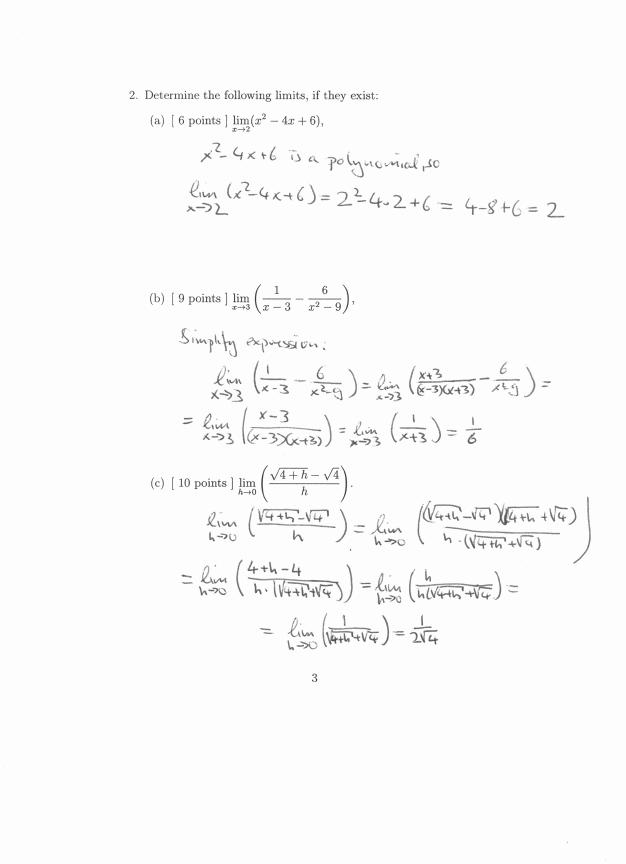 2. Determine the following limits, if they exist:
(a) [ 6 points ] lim_{x→2} (x² − 4x + 6),
x² − 4x + 6 is a polynomial, so
lim_{x→2} (x² − 4x + 6) = 2² − 4·2 + 6 = 4 − 8 + 6 = 2
(b) [ 9 points ] lim_{x→3} (1/(x − 3) − 6/(x² − 9)),
Simplify expression:
lim_{x→3} (1/(x−3) − 6/(x²−9)) = lim_{x→3} ((x+3)/((x−3)(x+3)) − 6/(x²−9)) =
= lim_{x→3} ((x−3)/((x−3)(x+3))) = lim_{x→3} (1/(x+3)) = 1/6
(c) [ 10 points ] lim_{h→0} ((√(4 + h) − √4)/h).
lim_{h→0} ((√(4+h) − √4)/h) = lim_{h→0} ((√(4+h) − √4)(√(4+h) + √4)/(h·(√(4+h) + √4)))
= lim_{h→0} ((4+h−4)/(h·(√(4+h) + √4))) = lim_{h→0} (h/(h(√(4+h) + √4))) =
= lim_{h→0} (1/(√(4+h) + √4)) = 1/(2√4)
3